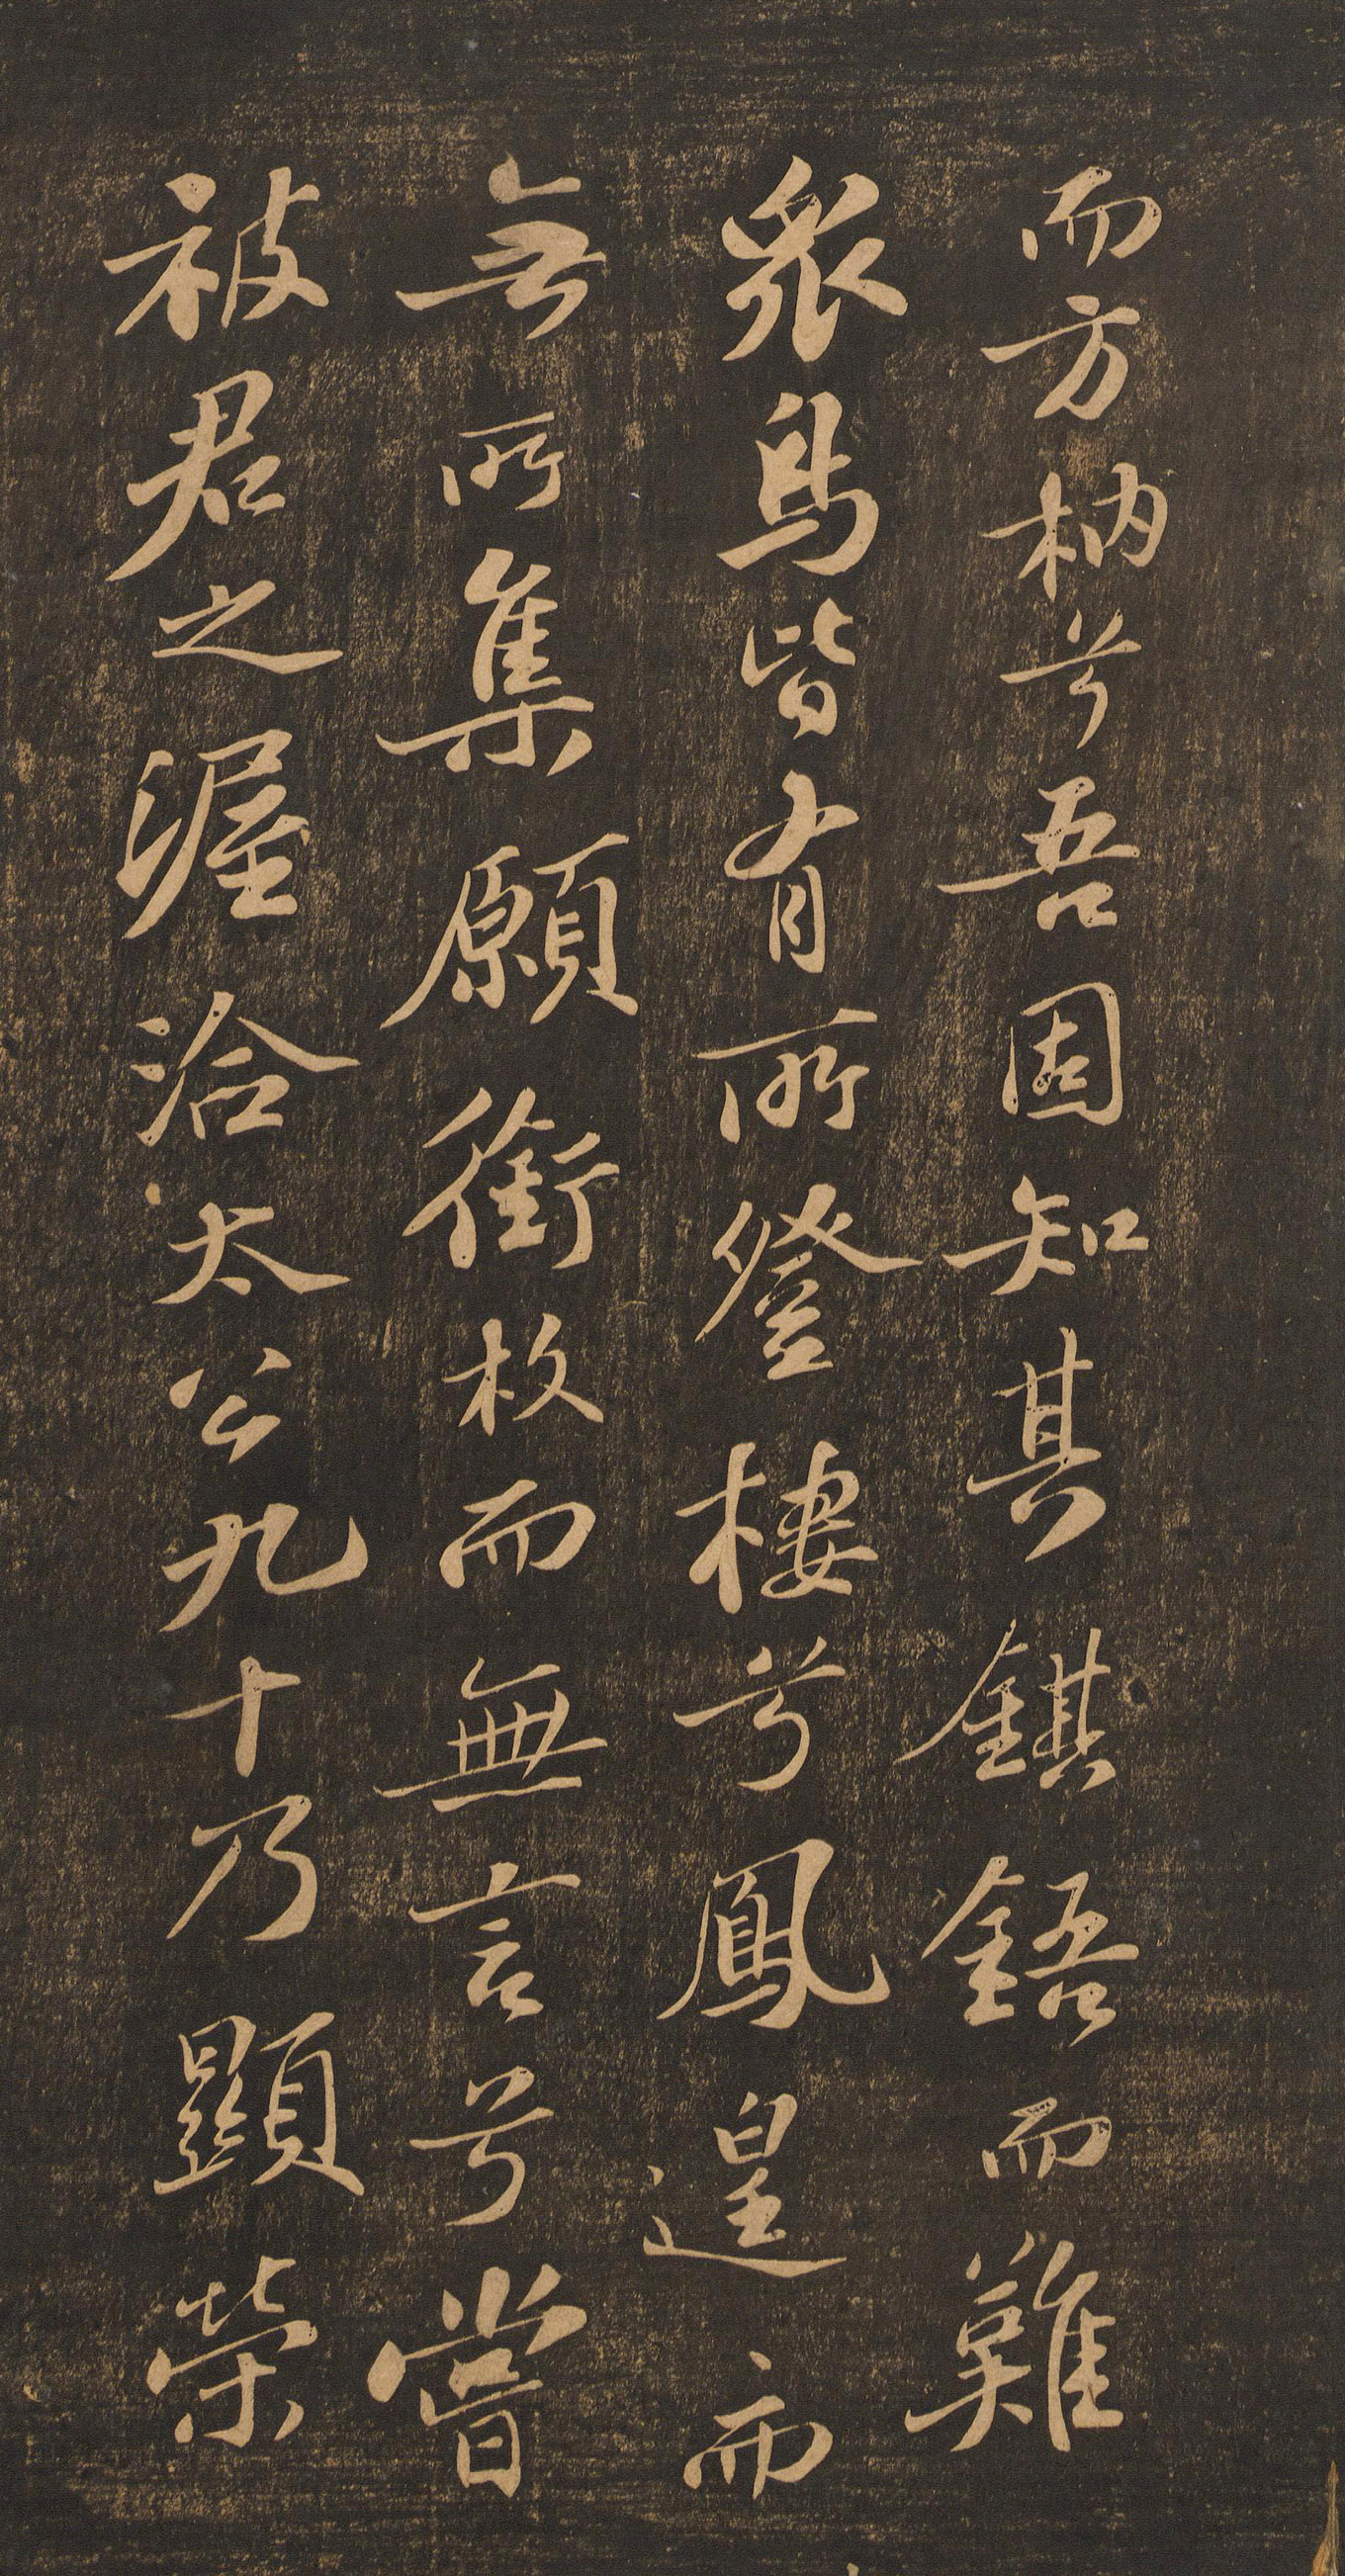 而方枘兮吾固知其鉏鋙而難
衆鳥皆有所登棲兮鳳遑遑而
無所集願銜枚而無言兮嘗
被君之渥洽太公九十乃顯榮